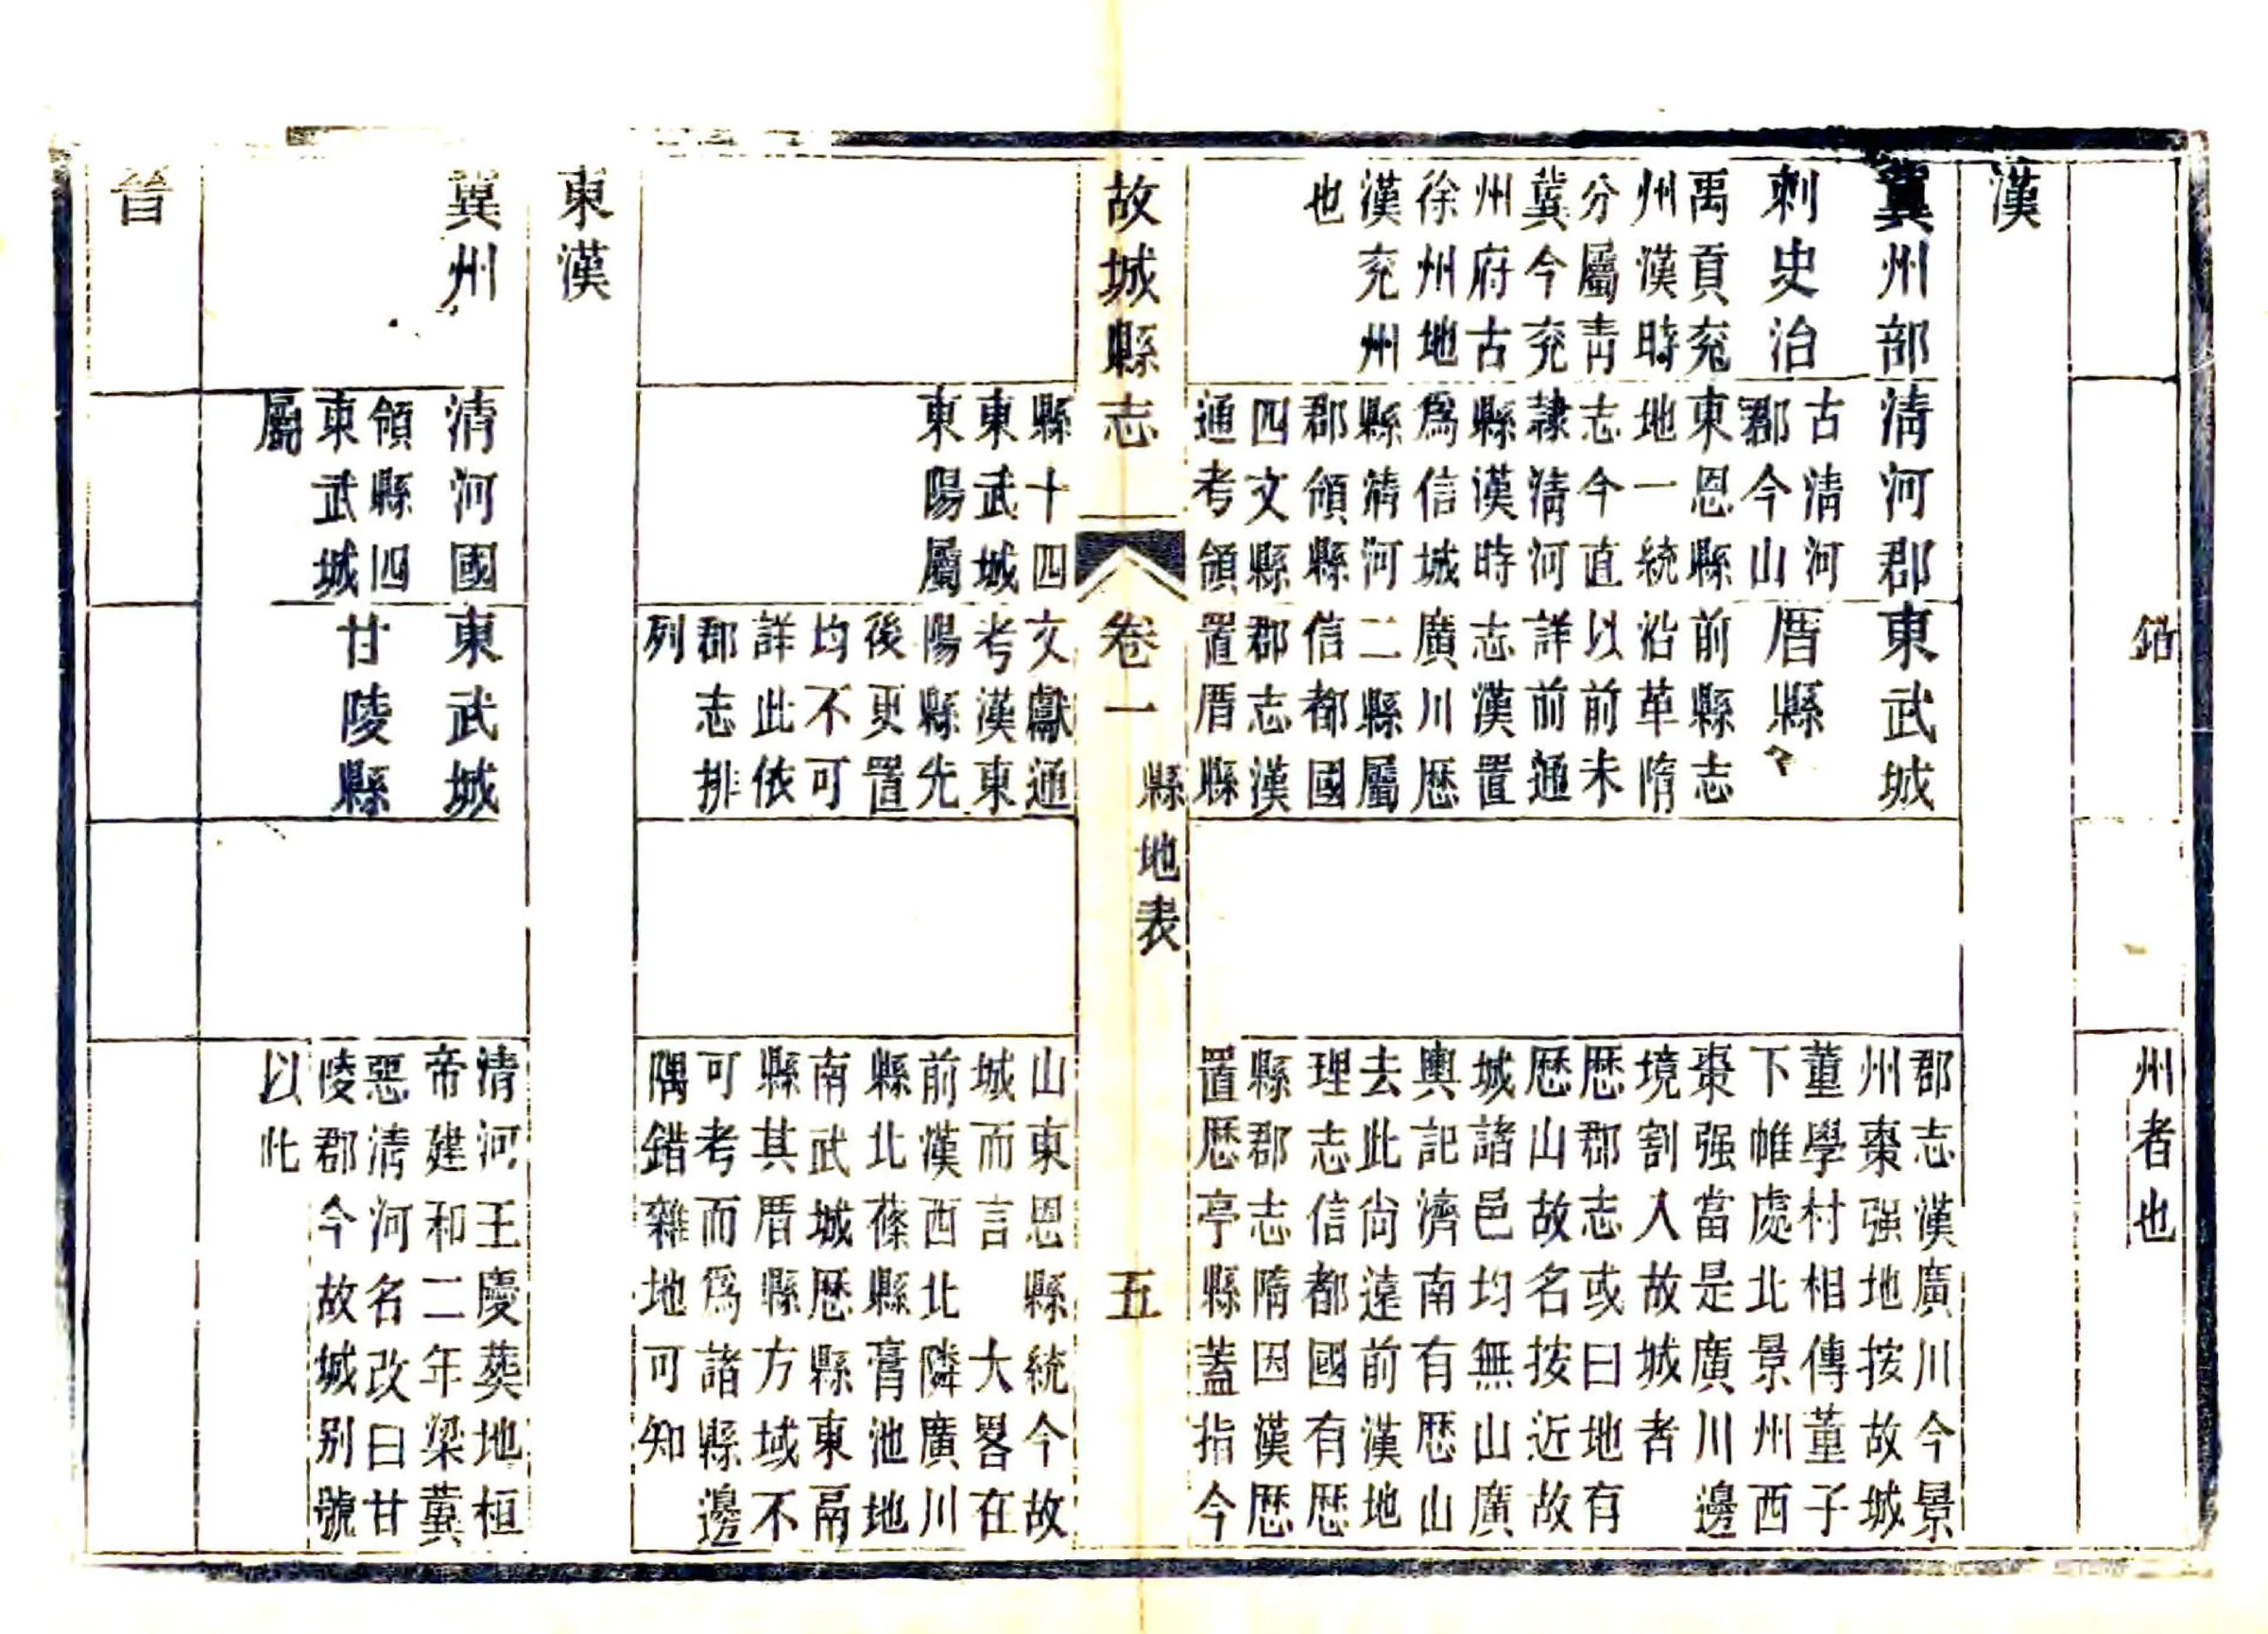 州者也
漢
冀州部
刺史治
禹貢兗
州漢時
分屬青
冀今兗
州府古
徐州地
漢兗州
也
清河郡
古清河
郡今山
東恩縣
地一統
志今直
隸清河
縣漢時
爲信城
縣清河
郡領縣
四文縣
通考領
東武城
厝縣
前縣志
沿革隋
以前未
詳前通
志漢置
廣川歷
二縣屬
信都國
郡志漢
置厝縣
郡志漢廣川今景
州棗强地按故城
董學村相傳董子
下帷處北景州西
棗强當是廣川邊
境割入故城者
歷郡志或曰地有
歷山故名按近故
城諸邑均無山廣
輿記濟南有歷山
去此尙遠前漢地
理志信都國有歷
縣郡志隋因漢歷
置歷亭縣蓋指今
故城縣志
卷一
縣地表
五
縣十四
東武城
東陽屬
文獻通
考漢東
陽縣先
後更置
均不可
詳此依
郡志排
列
山東恩縣統今故
城而言 大畧在
前漢西北隣廣川
縣北蓨縣膏池地
南武城歷縣東鬲
縣其厝縣方域不
可考而爲諸縣邊
隅錯雜地可知
東漢
冀州
清河國
領縣四
東武城
屬
東武城
甘陵縣
清河王慶葬地桓
帝建和二年梁冀
惡清河名改曰甘
陵郡今故城别號
以此
晉